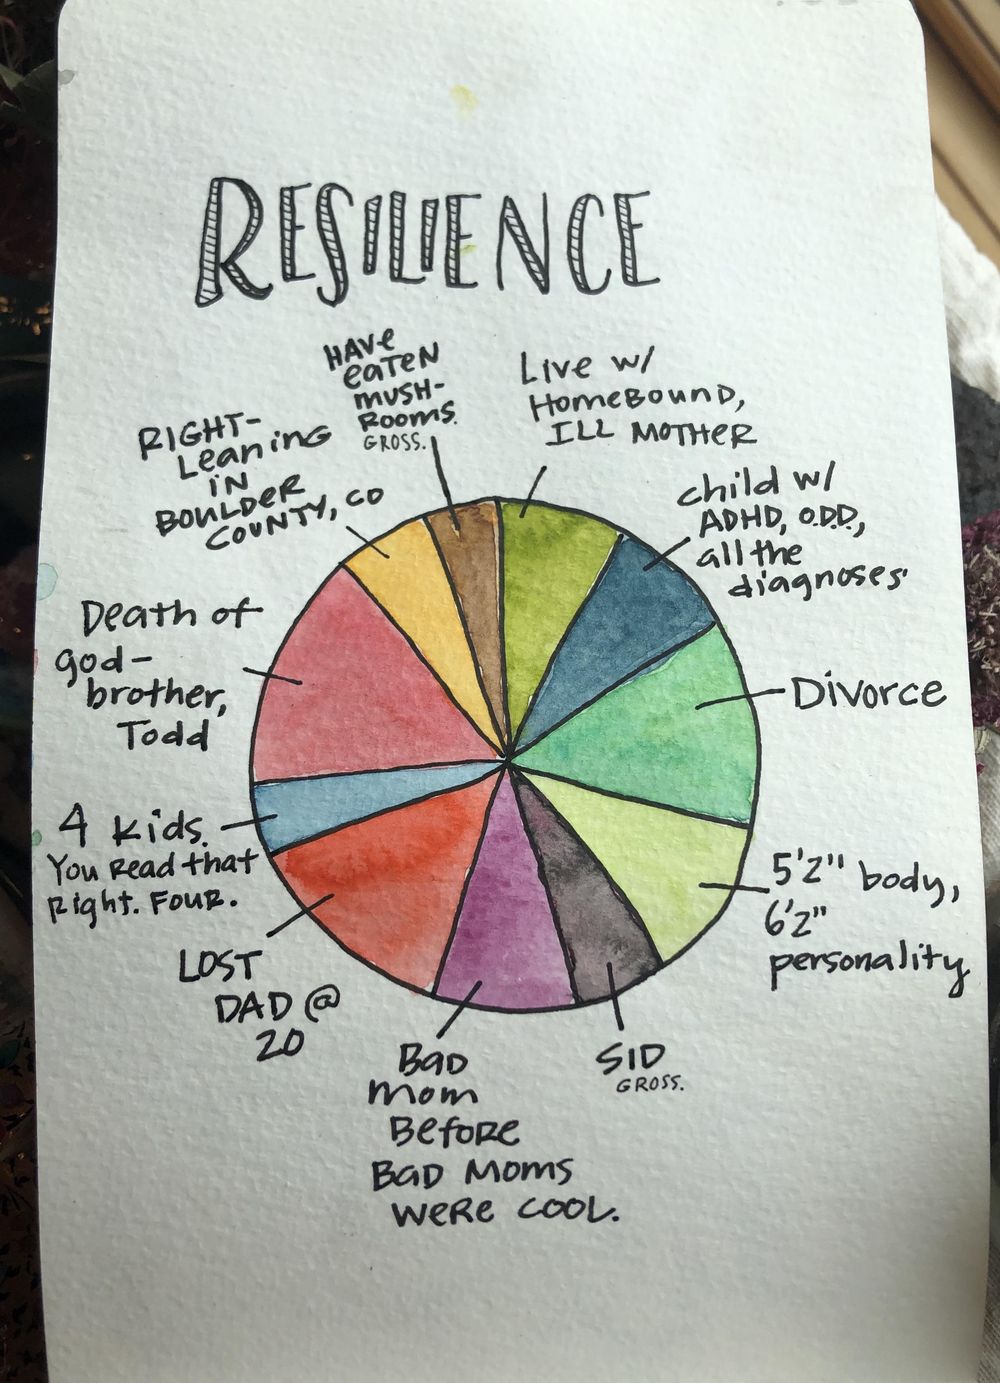 RESILIENCE
HAVE
eaTEN
MUSH-
ROOMS.
GROSS.
Live w/
HOMEBOUND,
ILL MOTHER
child w/
ADHD, O.D.D.,
all the
diagnoses
Divorce
5'2" body,
6'2"
personality
SID
GROSS.
Bad
mom
Before
Bad Moms
were cool.
LOST
DAD @
20
4 kids.
You Read that
Right. FOUR.
Death of
god-
brother,
Todd
RIGHT-
Leaning
IN
BOULDER
COUNTY, CO